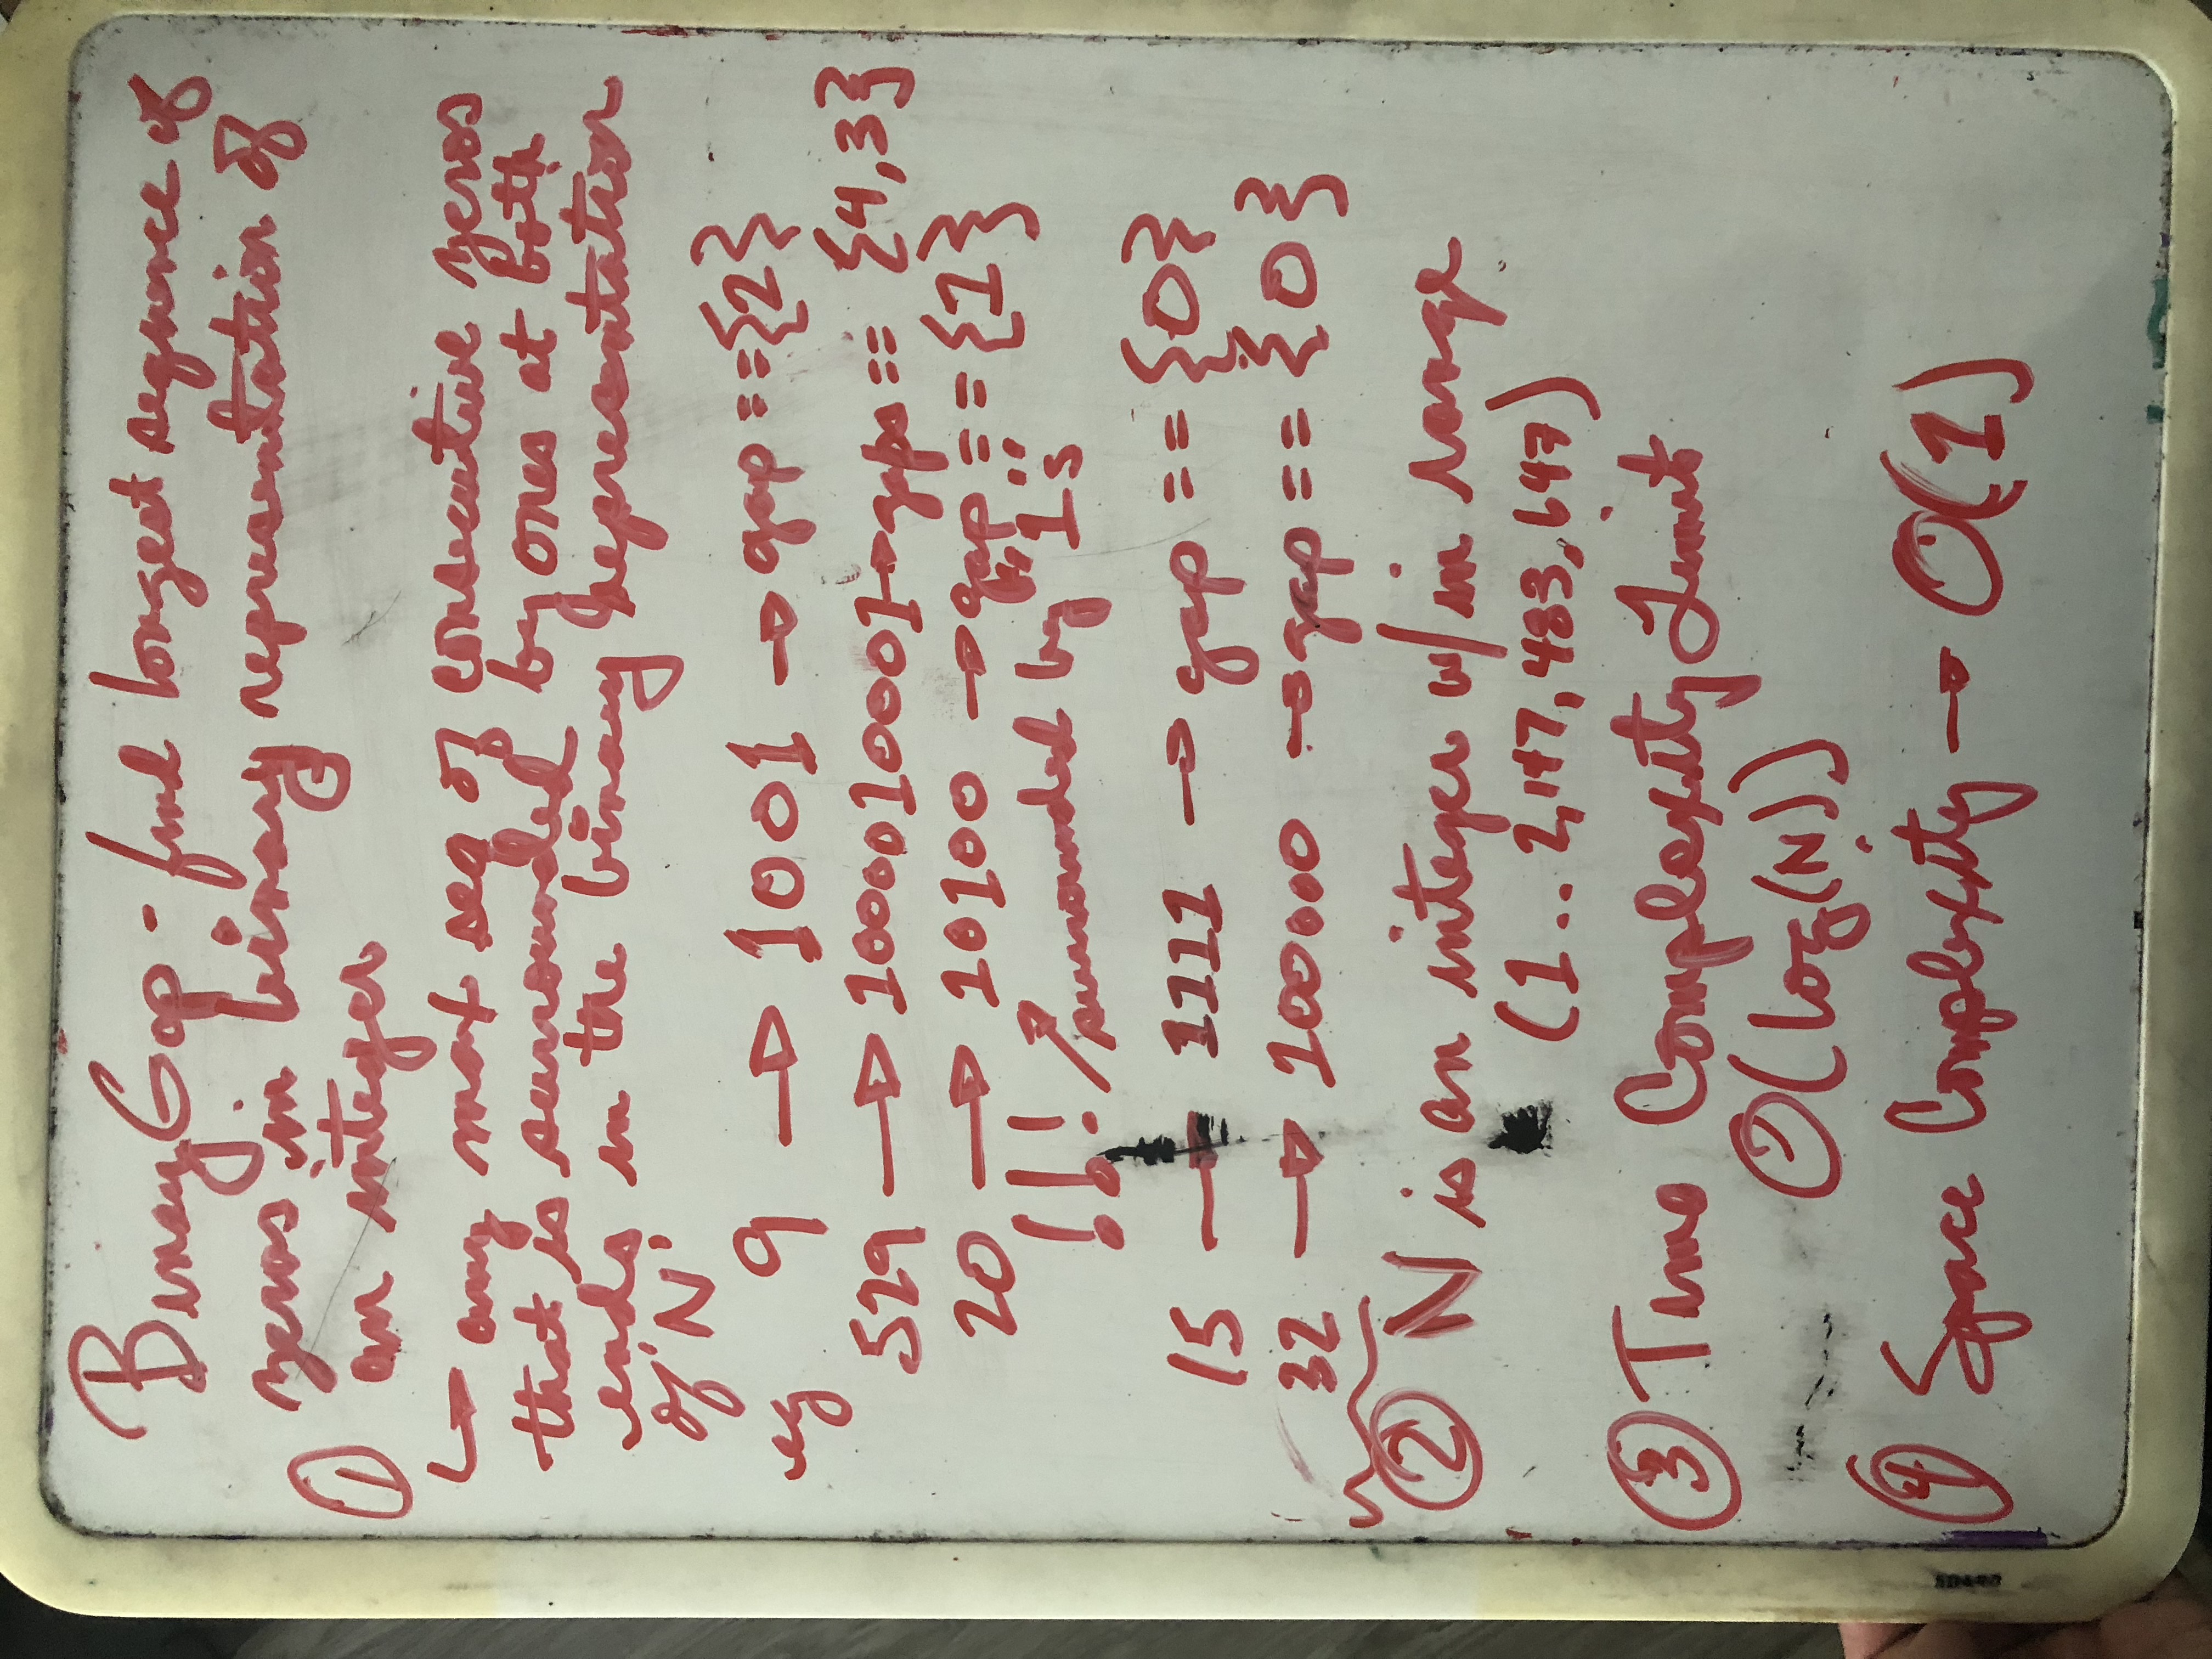 Binary Gap - find longest sequence of
zeros in binary representation of
① an integer
↳ any max seq of consecutive zeros
that is surrounded by ones at both
ends in the binary representation
of 'N'
eg 9 → 1001 → gap == {2}
529 → 1000010001 → gaps == {4,3}
20 → 10100 → gap == {1}
!!! ↗ surrounded by "1s"
15 → 1111 → gap == {0}
32 → 100000 → gap == {0}
② N is an integer w/in range
(1.. 2,147,483,647)
③ Time Complexity Limit
O(log(N))
④ Space Complexity → O(1)